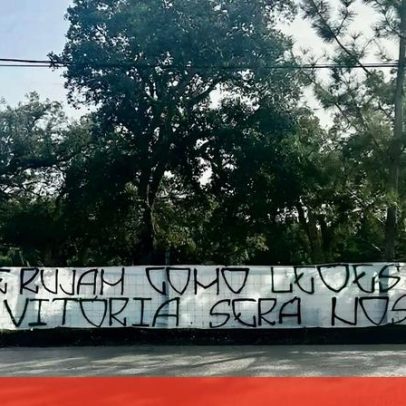 E RUJAM COMO LEÕES
VITÓRIA SERÁ NOS